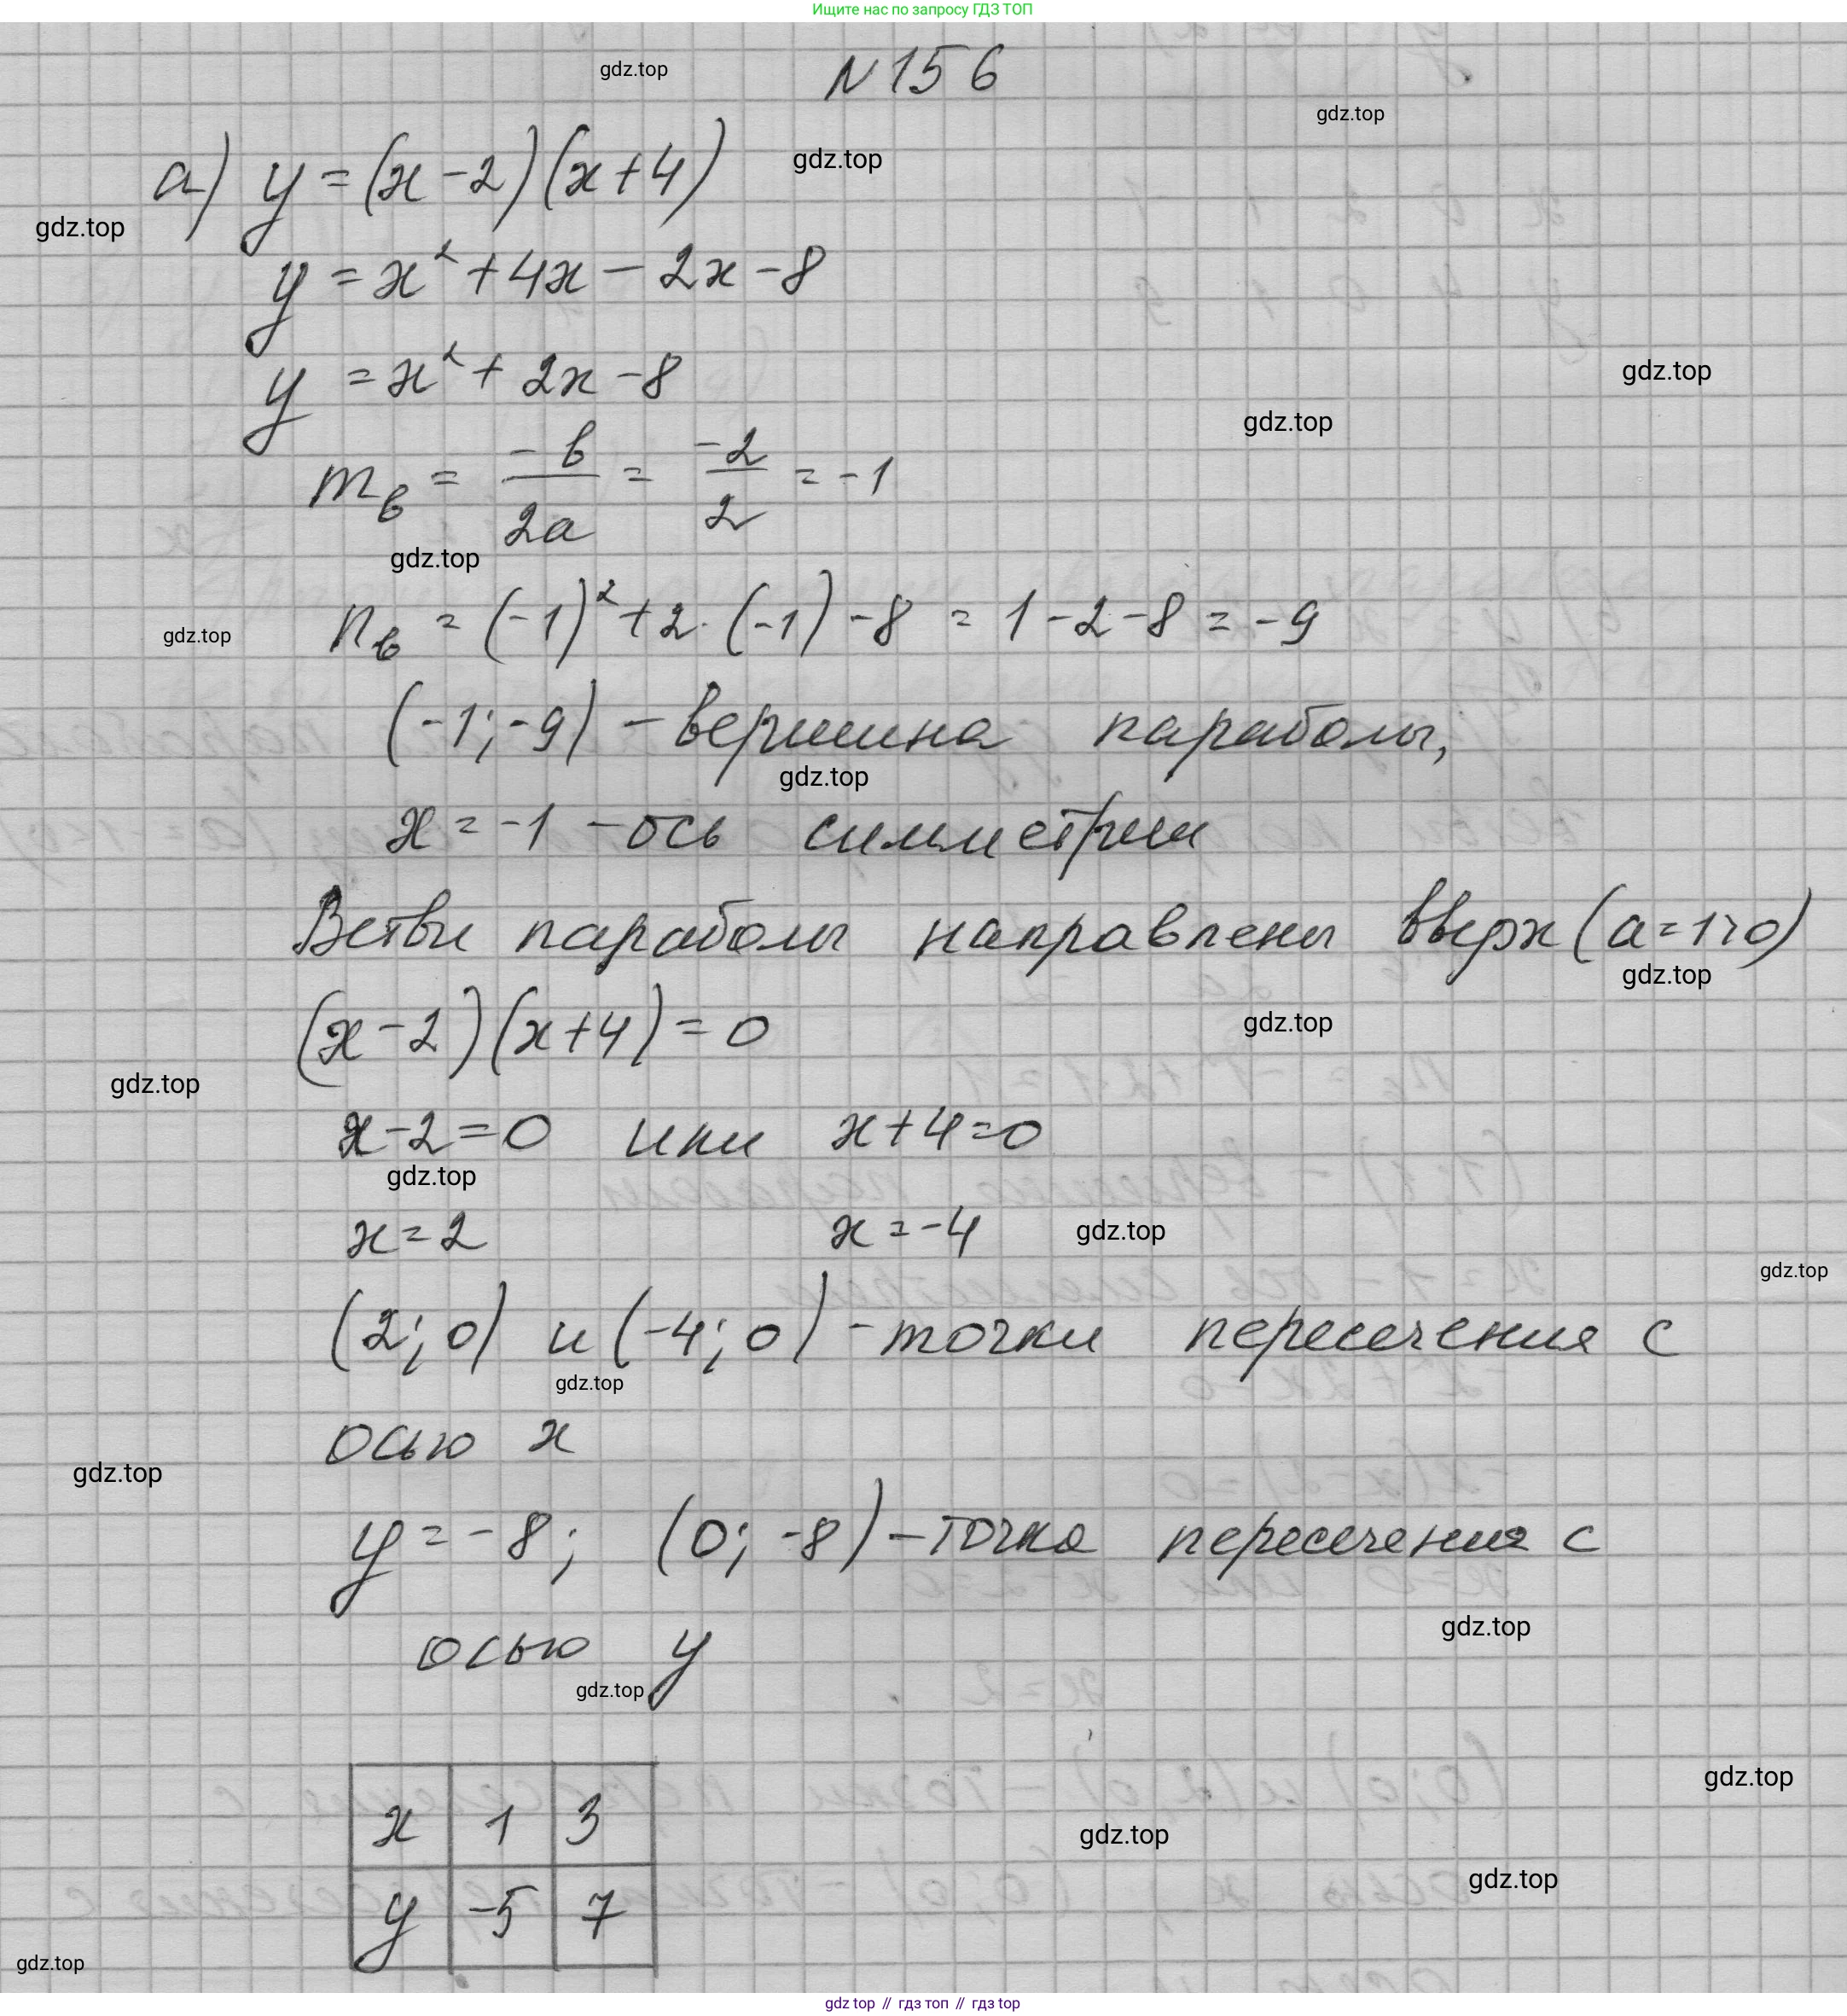 Ищите нас по запросу ГДЗ ТОП
N 156
gdz.top
gdz.top
а) y = (x - 2)(x + 4)
gdz.top
gdz.top
y = x² + 4x - 2x - 8
y = x² + 2x - 8
gdz.top
gdz.top
m_в = -b/2a = -2/2 = -1
gdz.top
n_в = (-1)² + 2·(-1) - 8 = 1 - 2 - 8 = -9
gdz.top
(-1; -9) - вершина параболы,
gdz.top
x = -1 - ось симметрии
Ветви параболы направлены вверх (a = 1 > 0)
gdz.top
(x - 2)(x + 4) = 0
gdz.top
gdz.top
x - 2 = 0 или x + 4 = 0
gdz.top
x = 2 x = -4
gdz.top
gdz.top
(2; 0) и (-4; 0) - точки пересечения с
gdz.top
осью x
gdz.top
y = -8; (0; -8) - точка пересечения с
gdz.top
осью y
gdz.top
gdz.top
x 1 3
gdz.top
gdz.top
y -5 7
gdz.top
gdz top // гдз топ // гдз top